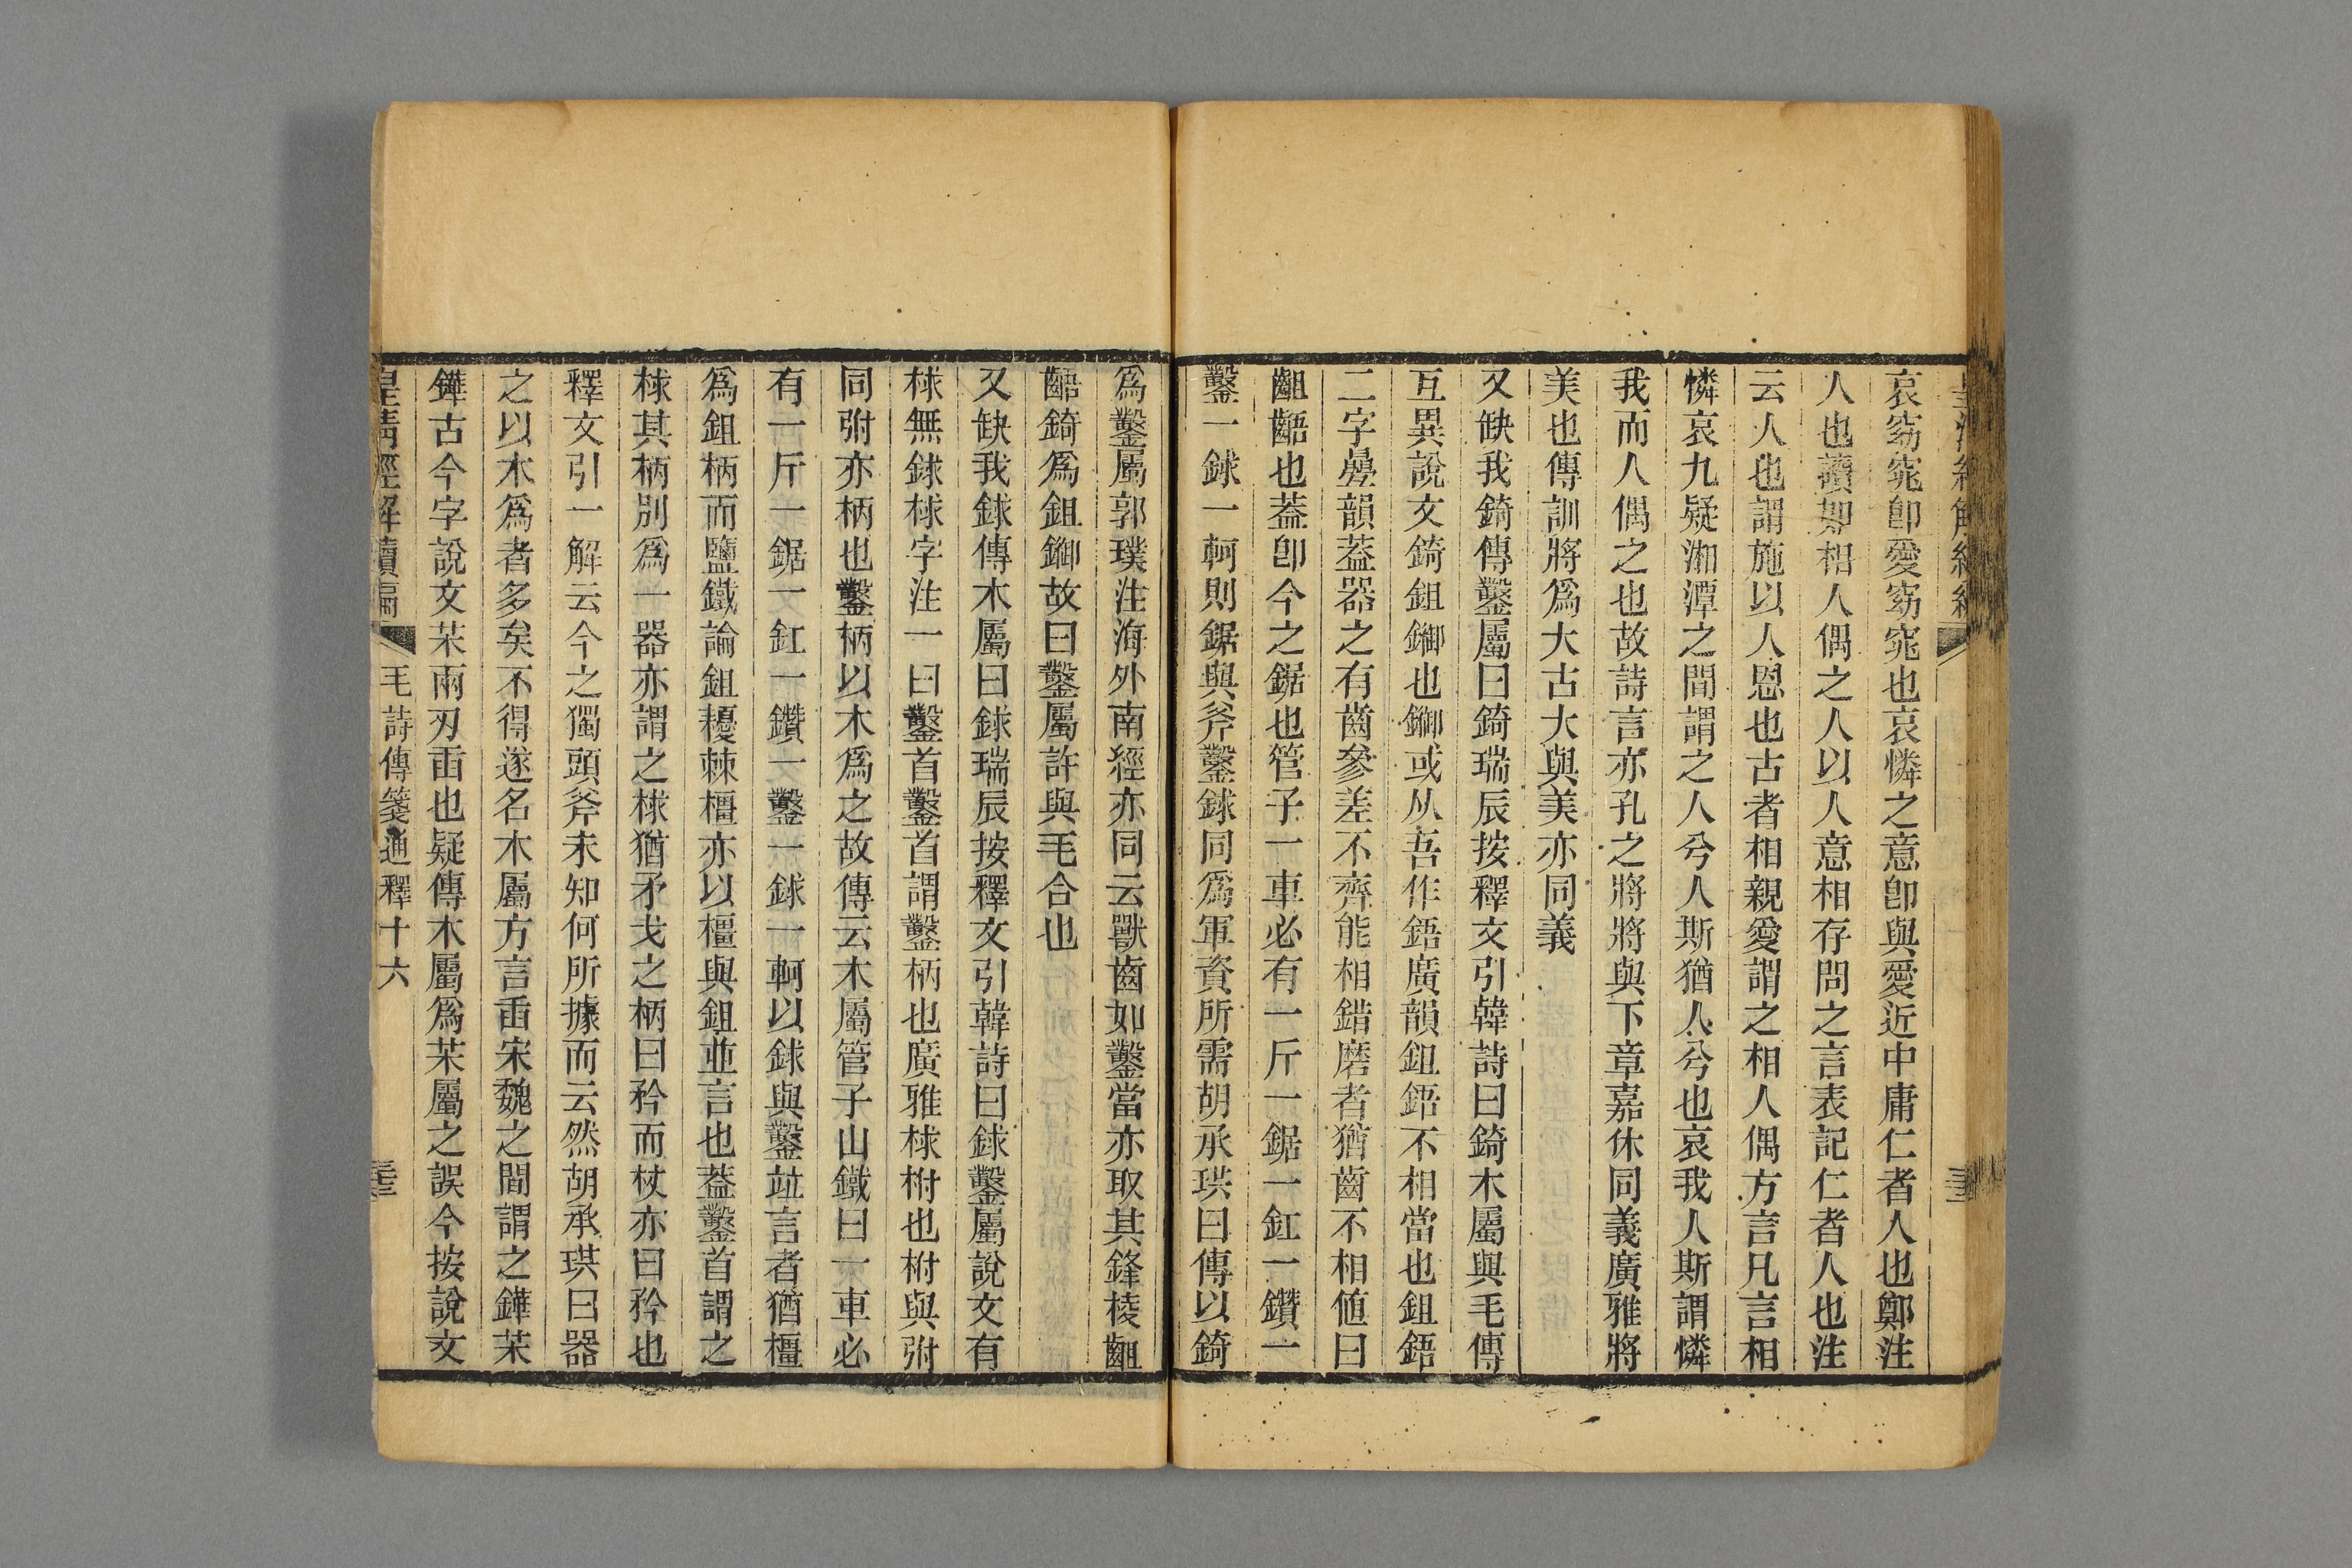 哀窈窕卽愛窈窕也哀憐之意卽與愛近中庸仁者人也鄭注
人也讀如相人偶之人以人意相存問之言表記仁者人也注
云人也謂施以人恩也古者相親愛謂之相人偶方言凡言相
憐哀九疑湘潭之間謂之人兮人斯猶人兮也哀我人斯謂憐
我而人偶之也故詩言亦孔之將將與下章嘉休同義廣雅將
美也傳訓將爲大古大與美亦同義
又缺我錡傳鑿屬曰錡瑞辰按釋文引韓詩曰錡木屬與毛傳
互異說文錡鉏鋤也鋤或从吾作鋙廣韻鉏鋙不相當也鉏鋙
二字曡韻蓋器之有齒參差不齊能相錯磨者猶齒不相値曰
齟齬也蓋卽今之鋸也管子一車必有一斤一鋸一釭一鑽一
鑿一銶一軻則鋸與斧鑿銶同爲軍資所需胡承珙曰傳以錡
爲鑿屬郭璞注海外南經亦同云獸齒如鑿當亦取其鋒棱齟
齬錡爲鉏鋤故曰鑿屬許與毛合也
又缺我銶傳木屬曰銶瑞辰按釋文引韓詩曰銶鑿屬說文有
梂無銶梂字注一曰鑿首鑿首謂鑿柄也廣雅梂柎也柎與弣
同弣亦柄也鑿柄以木爲之故傳云木屬管子山鐵曰一車必
有一斤一鋸一釭一鑽一鑿一銶一軻以銶與鑿竝言者猶橿
爲鉏柄而鹽鐵論鉏耰棘橿亦以橿與鉏並言也蓋鑿首謂之
梂其柄別爲一器亦謂之梂猶矛戈之柄曰矜而杖亦曰矜也
釋文引一解云今之獨頭斧未知何所據而云然胡承珙曰器
之以木爲者多矣不得遂名木屬方言臿宋魏之間謂之鏵茉
鏵古今字說文茉兩刃臿也疑傳木屬爲茉屬之誤今按說文
皇淸經解續編 毛詩傳箋通釋十六